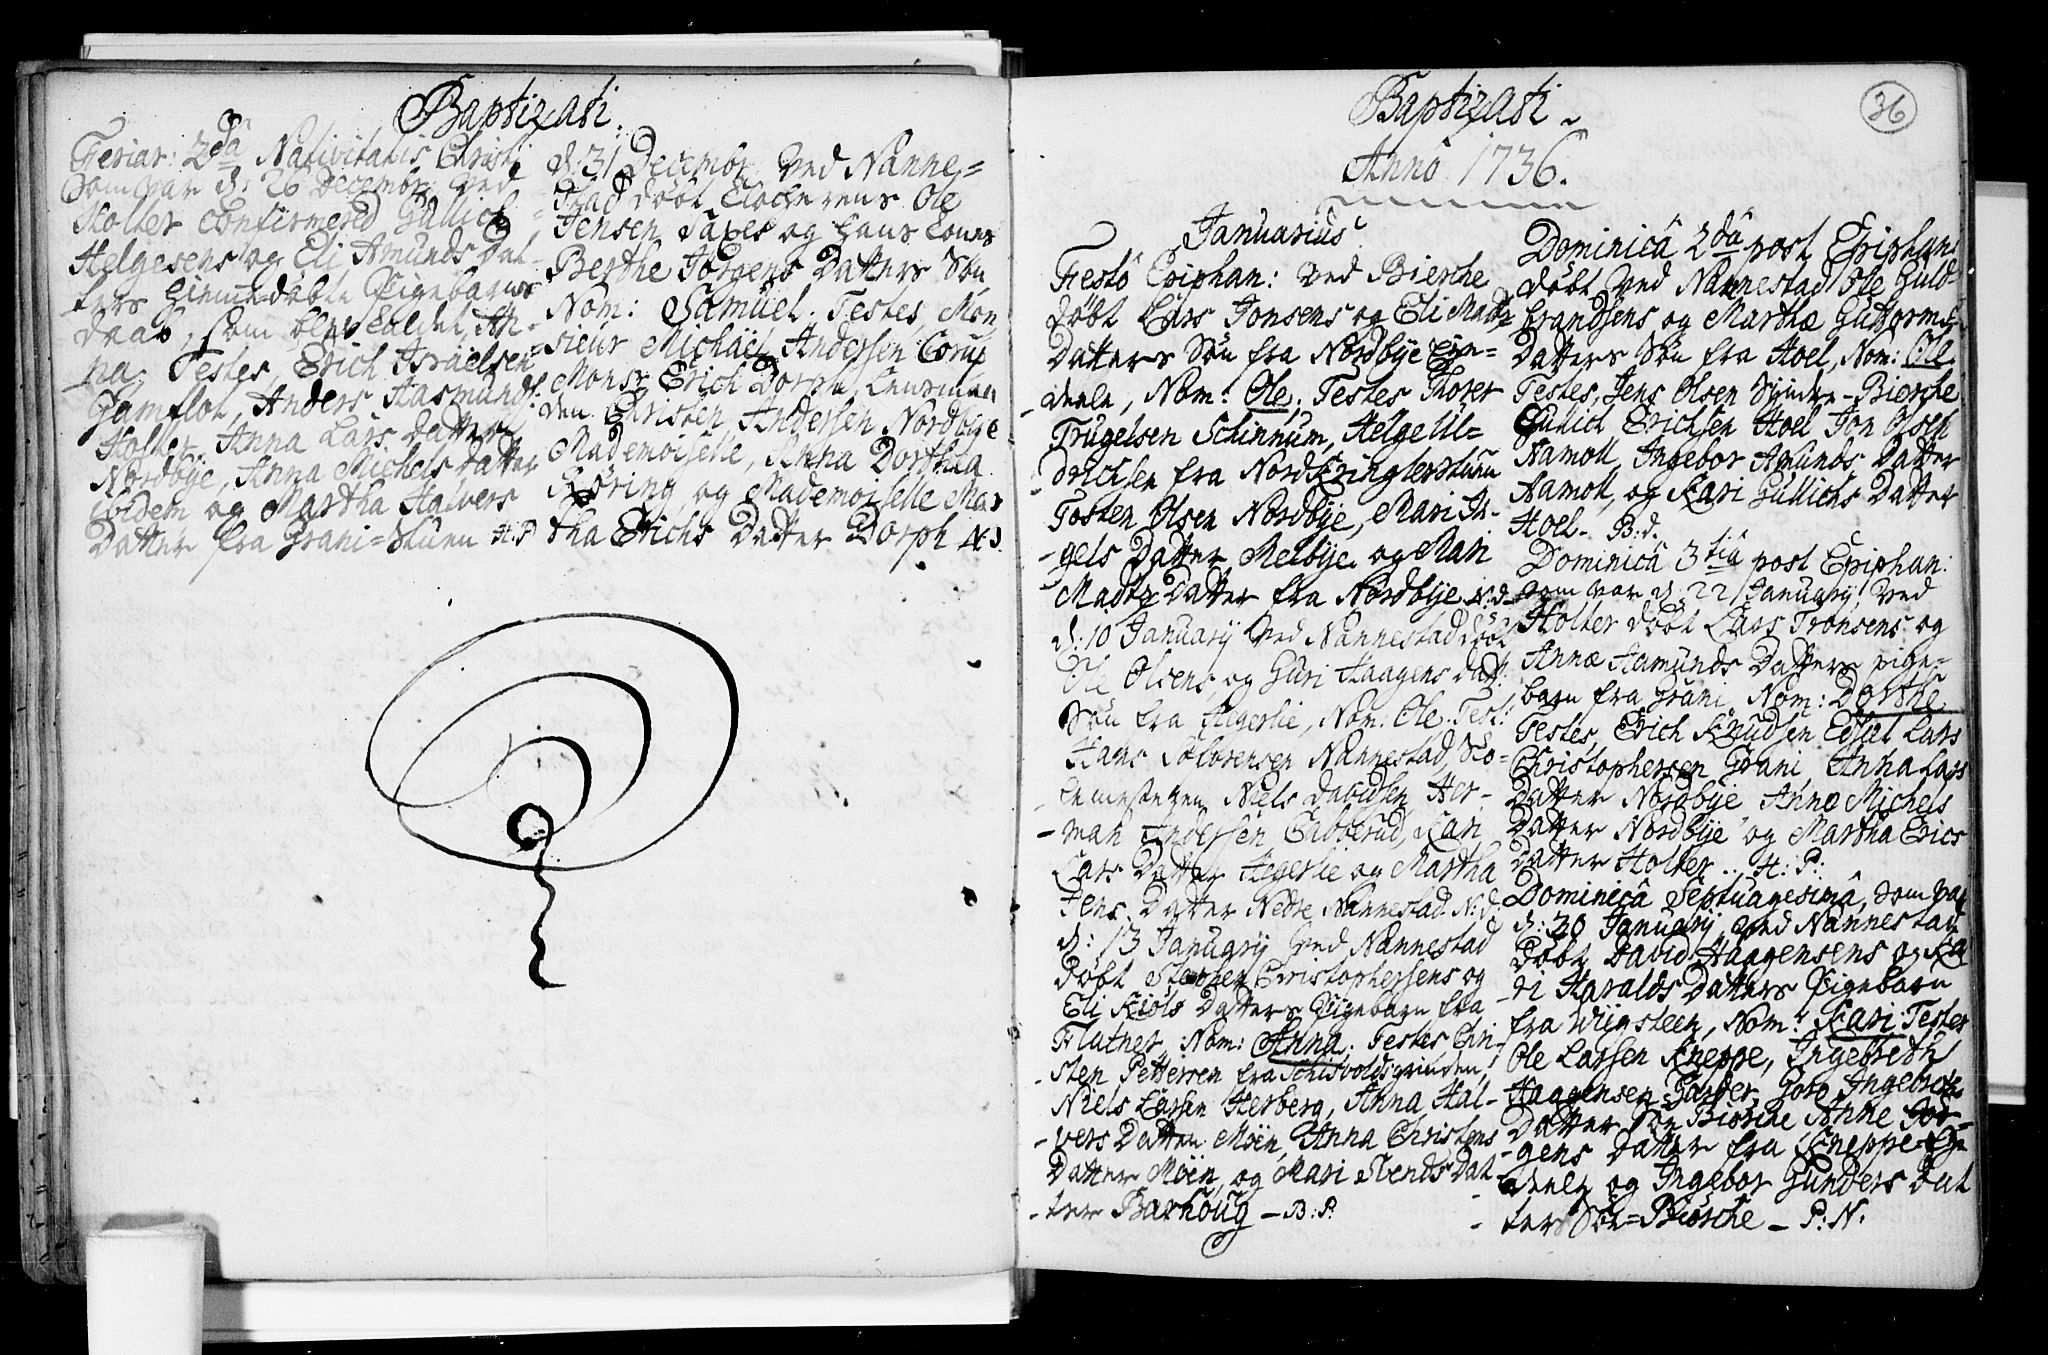 Baptizati.
Feriar: 2dâ Nativitatis Christi
som var d: 26 Decembr: ved
Holter Confirmered Gullich
Helgesens og Eli Amunds Dat-
ters hiemmedøbte Pigebarns
daab, som blev kaldet, An-
na. Testes, Erich Israelsen
Gamflot, Anders Aasmunds:
Holter, Anna Lars Datter
Nordbye, Anna Michels Datter
ibidem og Martha Halvers
Datter fra Grani=Stuen H.P
d: 31 Decembr. ved Nanne=
stad døbt Klocherens Ole
Jensen Saxes og hans Kones
Berthe Jørgens Datters Søn
Nom: Samuel. Testes, Mon
sieur Michael Andersen Corup
Monsr Erich Dorph, Lensman
den Christen Andersen Nordbye
Mademoiselle, Anna Dorthea
Røring, og Mademoiselle Mar
tha Erichs Datter Dorph N.d.
Baptizati.
36
Anno 1736.
Januarius
Festô Epiphan: ved Bierche
døbt Lars Jonsens og Eli Madtz
Datters Søn fra Nordbye Eyn=
deele, Nom: Ole. Testes Thorer
Trugelsen Schinnum, Helge Ul=
drichsen fra Nordkringlerstuen
Tosten Olsen Nordbye, Mari In-
gels Datter Melbye, og Mari
Madtz Datter fra Nordbye N:d
d: 10 January ved Nannestad døbt
Ole Olsens og Guri Haagens Datt:
Søn fra Hegerlie, Nom: Ole. Test:
Hans Nannestad, Sko=
lemesteren Niels Davidsen, Her-
man Andersen Kari
Lars Datter Hegerlie og Martha
Jens Datter Nedre Nannestad. N:d.
d: 13 January ved Nannestad
døbt Christophersens og
Eli Kiøls Datters Pigebarn fra
Flatner, Nom: Anna. Testes Chri-
sten Pettersen fra Schisvoldsgrinden,
Niels Larsen Herberg, Anna Hal-
vers Datter Moen, Anna Christens
Datter Moen, og Mari Svends Dat-
ter Barhoug - B: P.
Dominicâ 2dâ post Epiphan:
døbt ved Nannestad Ole Guld-
brandsens og Marthæ Guttorms
Datters Søn fra Hoel, Nom: Ole
Testes, Jens Olsen Syndre-Bierche
Gullich Erichsen Hoel Jon Olsen
Aamoll, Ingebor Amunds Datter
Aamoll, og Kari Gullichs Datter
Hoel. B:d.
Dominicâ 3tiâ post Epiphan:
som var d. 22 January, ved
Holter døbt Lars Tronsens og
Annæ Aamunds Datters pige-
barn fra Grani, Nom: Dorthe
Testes, Erich Knudsen Lars
Christophersen Grani, Anna Lars
Datter Nordbye Anne Michels
Datter Nordbye og Martha Erics
Datter Holter. H: P:
Dominicâ Septuagesimâ, som var
d: 30 January, ved Nannestad
døbt David Haagensens og Ka
ri Haralds Datters Pigebarn
fra Wiigsteen, Nom: Kari. Testes
Ole Larsen Kneppe, Ingebreth
Haagensen Garder, Goro Ingebrets
Datter Søe Biørche Anne Jør-
gens Datter fra Kneppe-Eyn
deele og Ingebor Gunders Dat
ter Søe=Biørche - P: N.